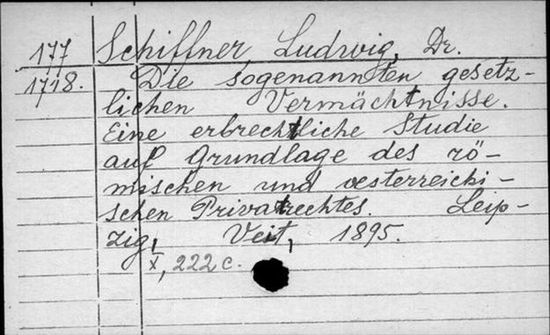 177 Schiffner, Ludwig, Dr.
1718. Die sogenannten gesetz-
lichen Vermächtnisse.
Eine erbrechtliche Studie
auf Grundlage des rö-
mischen und oesterreichi-
schen Privatrechtes. Leip-
zig, Veit, 1895.
X, 222 c.